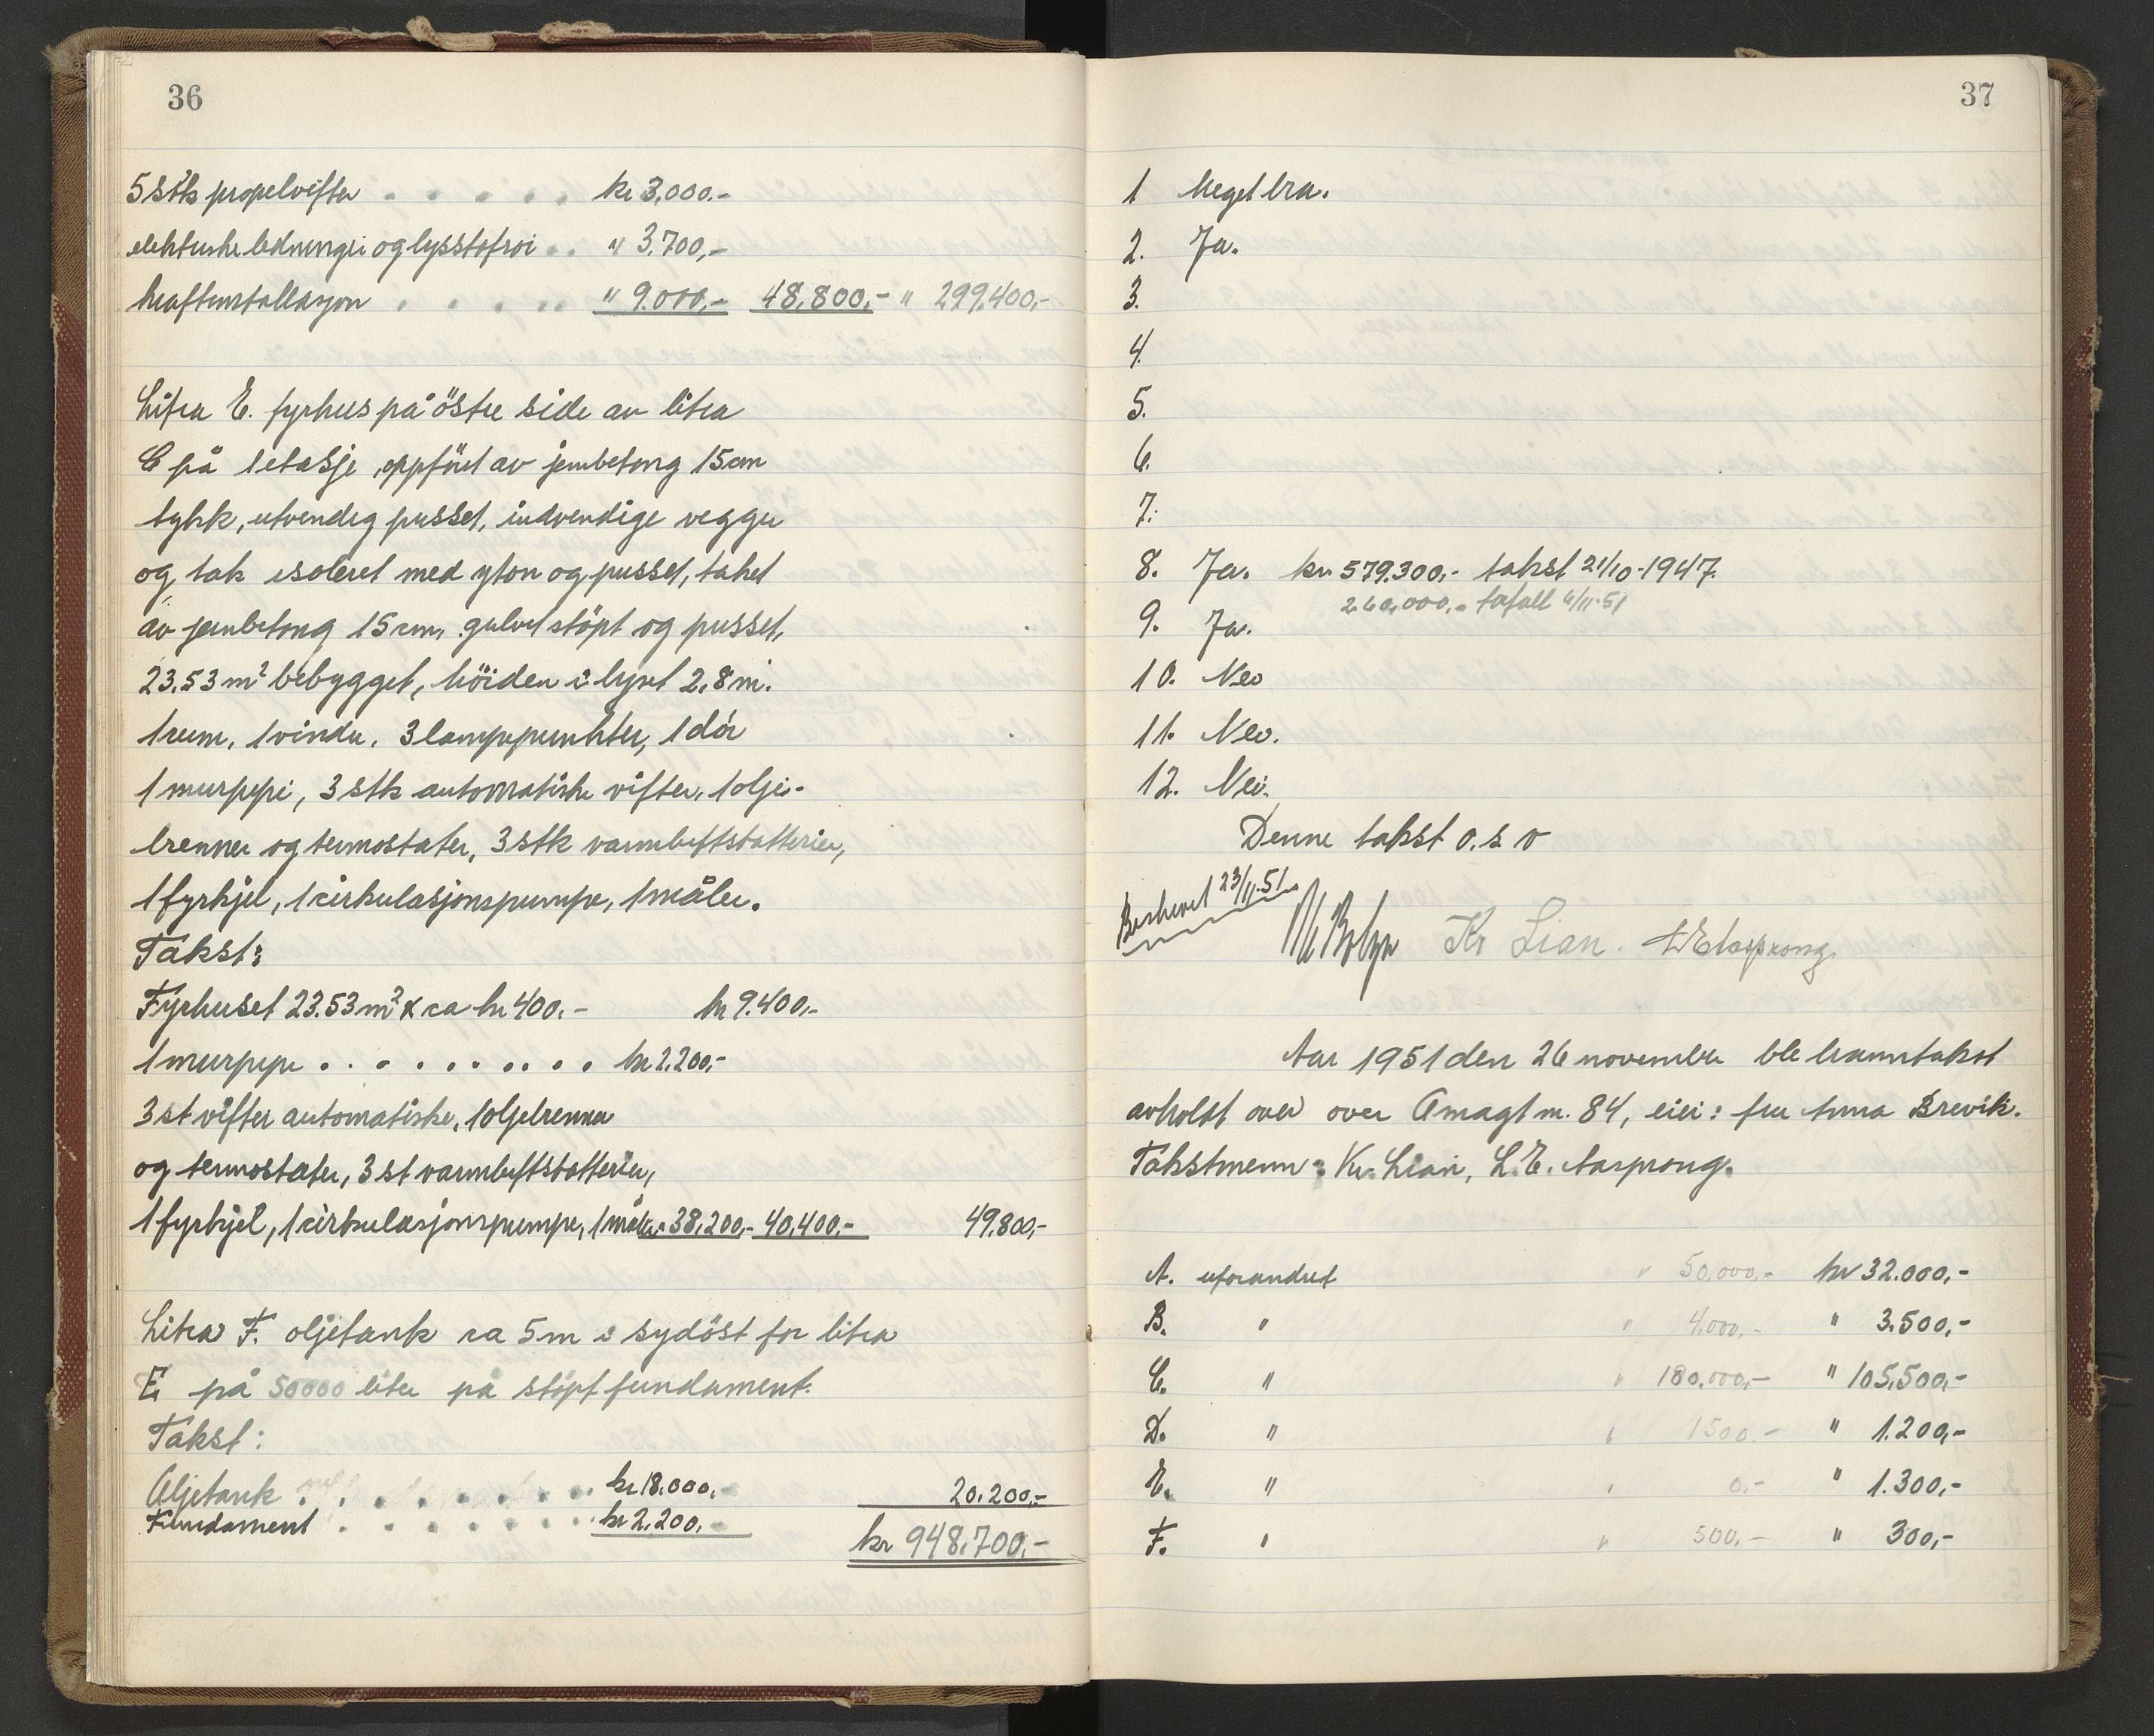 36
5 stk propelvifter . . . . . . kr 3,000.-
elektriske ledninger og lysstofrør . . " 3.700,-
kraftinstallasjon . . . . . . " 9.000,- 48,800,- " 299.400,-
Litra E. fyrhus på östre side av litra
C på 1 etasje, oppfört av jernbetong 15 cm
tykk, utvendig pusset, indvendige vegger
og tak isoleret med yton og pusset, taket
av jernbetong 15 cm, gulvet stöpt og pusset,
23.53 m² bebygget, höiden i lyset 2,8 m.
1 rum, 1 vindu, 3 lampepunkter, 1 dör
1 murpipe, 3 stk automatiske vifter, 1 olje-
brenner og termostater, 3 stk varmluftsbatterier,
1 fyrkjel, 1 cirkulasjonspumpe, 1 måler.
Takst:
Fyrhuset 23.53 m² x ca kr 400.- kr 9.400,-
1 murpipe . . . . . . . . . . kr 2.200,-
3 st vifter automatiske, 1 oljebrenner
og termostater, 3 st varmluftsbatterier,
1 fyrkjel, 1 cirkulasjonspumpe, 1 måler " 38,200,- 40,400,- 49,800,-
Litra F. oljetank ca 5 m i sydöst for litra
E, på 50000 liter på stöpt fundament.
Takst:
Oljetank . . . . . . . . . kr 18.000,- 20.200,-
Fundament . . . . . . . . kr 2,200,-
kr 948,700,-
37
1 Meget bra.
2. Ja.
3.
4.
5.
6.
7.
8. Ja. kr. 579.300,- takst 21/10-1947.
260,000,- forfall 6/11-51
9. Ja.
10. Nei
11. Nei.
12. Nei.
Denne takst o.s.v
Beskrevet 23/11.51
Kr Lian. L E Aasprong
Aar 1951 den 26 november ble branntakst
avholdt over over Amagt m. 84, eier: fru Anna Brevik.
Takstmenn: Kr. Lian, L.E. Aasprong.
A. uforandret " 50,000,- kr 32.000,-
B. " " 4,000,- " 3.500,-
C. " " 180,000,- " 105,500,-
D. " " 1500.- " 1.200,-
E. " " 0,- " 1.300,-
F. " " 500,- " 300,-